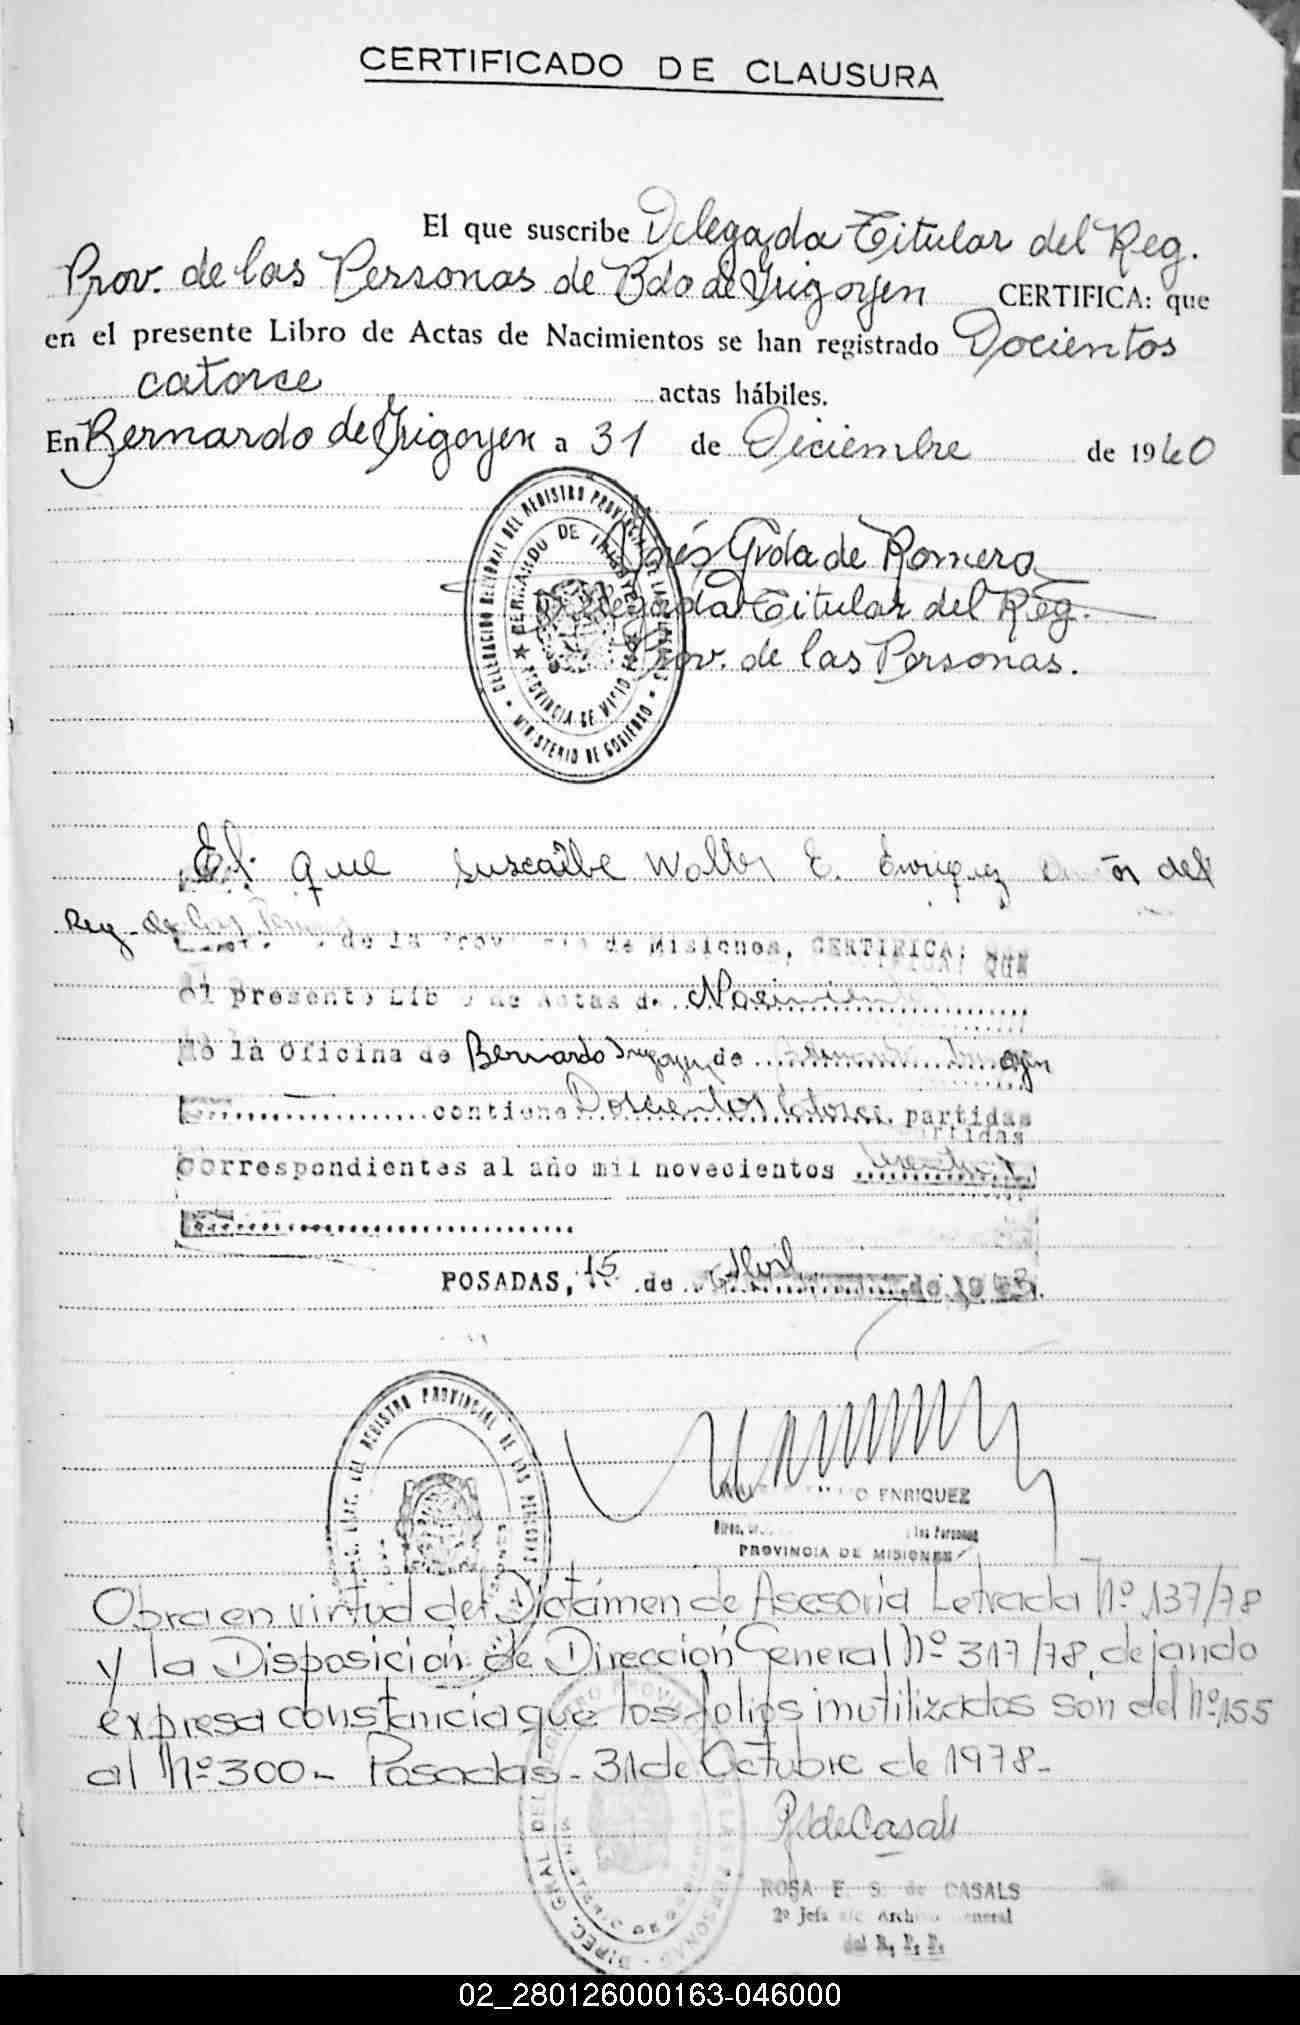 CERTIFICADO DE CLAUSURA
El que suscribe Delegada Titular del Reg.
Prov. de las Personas de Bdo de Yrigoyen CERTIFICA: que
en el presente Libro de Actas de Nacimientos se han registrado Docientos
catorce actas hábiles.
En Bernardo de Yrigoyen a 31 de Diciembre de 1960
DELEGACION REGIONAL DEL REGISTRO PROVINCIAL DE LAS PERSONAS
BERNARDO DE IRIGOYEN
PROVINCIA DE MISIONES
MINISTERIO DE GOBIERNO
Gvda de Romero
Delegada Titular del Reg.
Prov. de las Personas.
El que suscribe Walter E. Enriquez del
Reg. de las de la Provincia de Misiones, CERTIFICA: QUE
el presente Libro de Actas de Nacimientos
de la Oficina de Bernardo Irigoyen de
contiene Doscientos Catorce partidas
correspondientes al año mil novecientos
POSADAS, 15 de Abril de 19
REGISTRO PROVINCIAL DE LAS PERSONAS
ENRIQUEZ
las Personas
PROVINCIA DE MISIONES
Obra en virtud del Dictámen de Asesoria Letrada Nº 137/78
y la Disposición de Dirección General Nº 317/78, dejando
expresa constancia que los folios inutilizados son del Nº 155
al Nº 300- Posadas- 31 de Octubre de 1978-
de Casals
ROSA E. S. de CASALS
2º Jefa a/c Archivo General
del R. P. P.
02_280126000163-046000